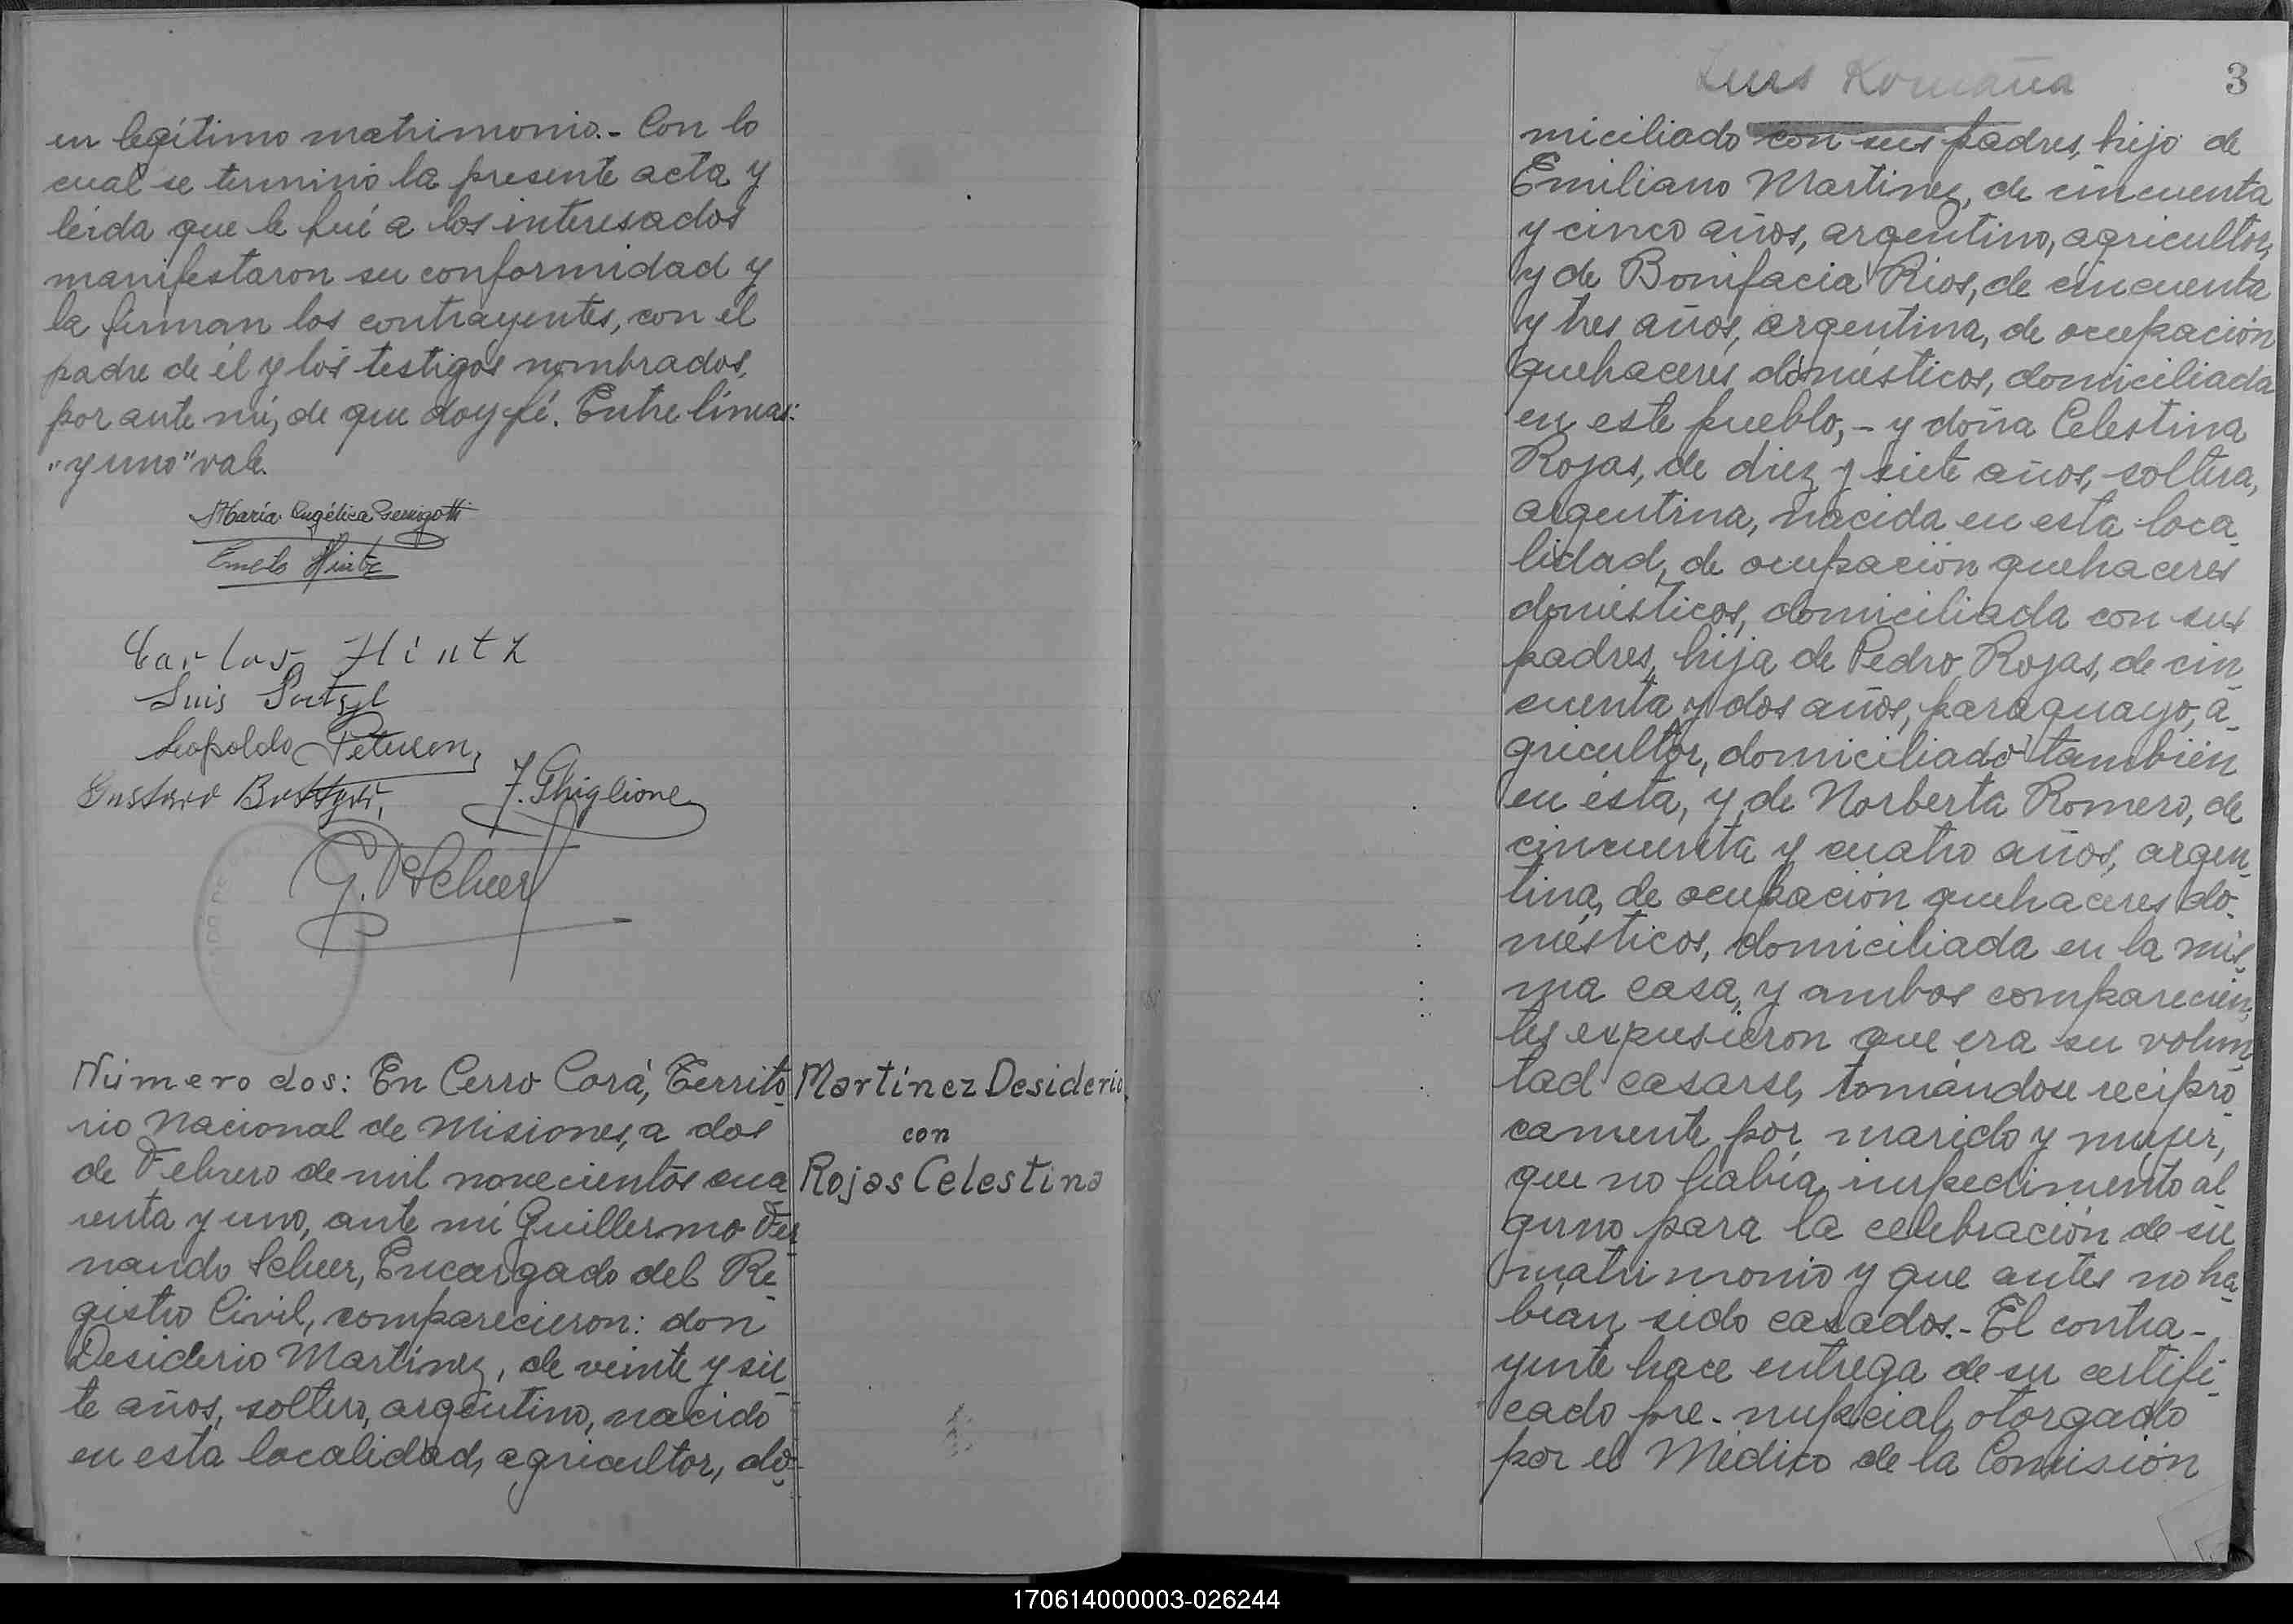 en legítimo matrimonio.- Con lo
cual se terminó la presente acta y
leída que le fué a los interesados
manifestaron su conformidad y
la firman los contrayentes, con el
padre de él y los testigos nombrados,
por ante mí, de que doy fé. Entre líneas:
"y uno" vale.
María Angélica
Hintz
Carlos Hintz
Luis
Leopoldo Petersen,
Gustavo
J. Ghiglione
G. F. Scheer
Número dos: En Cerro Corá, Territo-
rio Nacional de Misiones, a dos
de Febrero de mil novecientos cua-
renta y uno, ante mí Guillermo Fer-
nando Scheer, Encargado del Re-
gistro Civil, comparecieron: don
Desiderio Martínez, de veinte y sie-
te años, soltero, argentino, nacido
en esta localidad, agricultor, do-
Martínez Desiderio
con
Rojas Celestina
Luis Romaña
3
miciliado con sus padres, hijo de
Emiliano Martinez, de cincuenta
y cinco años, argentino, agricultor,
y de Bonifacia Rios, de cincuenta
y tres años, argentina, de ocupación
quehaceres domésticos, domiciliada
en este pueblo,- y doña Celestina
Rojas, de diez y siete años, soltera,
argentina, nacida en esta loca-
lidad, de ocupación quehaceres
domésticos, domiciliada con sus
padres, hija de Pedro Rojas, de cin-
cuenta y dos años, paraguayo, a-
gricultor, domiciliado también
en ésta, y de Norberta Romero, de
cincuenta y cuatro años, argen-
tina, de ocupación quehaceres do-
mésticos, domiciliada en la mis-
ma casa, y ambos comparecien-
tes expusieron que era su volun-
tad casarse, tomándose recípro-
camente por marido y mujer,
que no había impedimento al-
guno para la celebración de su
matrimonio y que antes no ha-
bían sido casados.- El contra-
yente hace entrega de su certifi-
cado pre-nupcial, otorgado
por el Médico de la Comisión
170614000003-026244